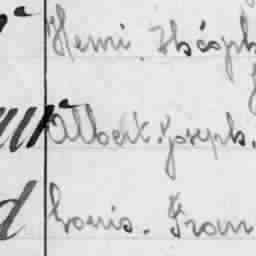 Henri. Théoph
Albert. Joseph.
Louis. Fran